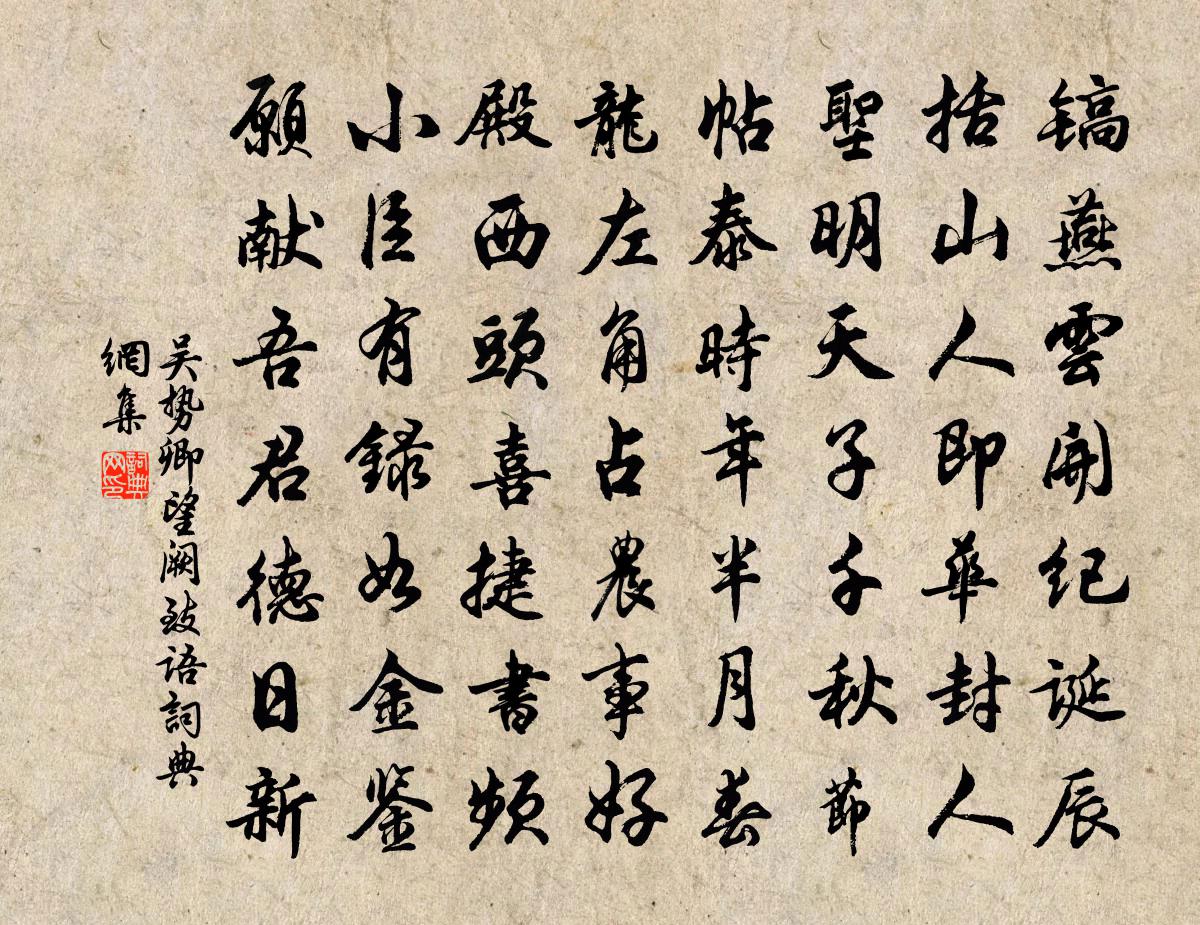 镐燕雲開纪诞辰
括山人即華封人
聖明天子千秋節
帖泰時年半月春
龍左角占農事好
殿西頭喜捷書頻
小臣有録如金鉴
願献吾君德日新
吴势卿望阙致语詞典
網集
詞典网印